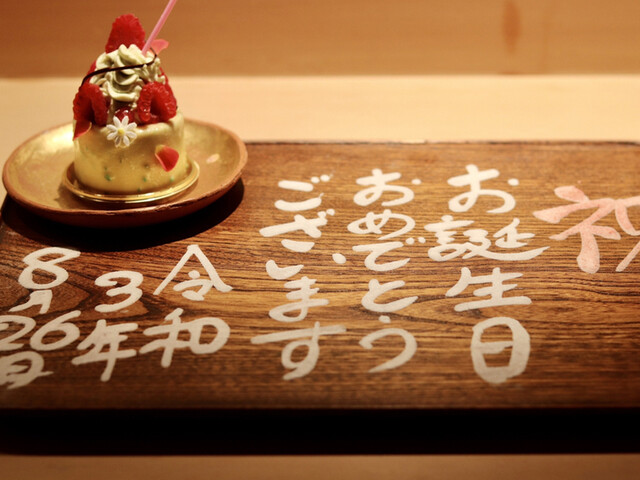 祝
お誕生日
おめでとう
ございます
令和
3年
8月
26日